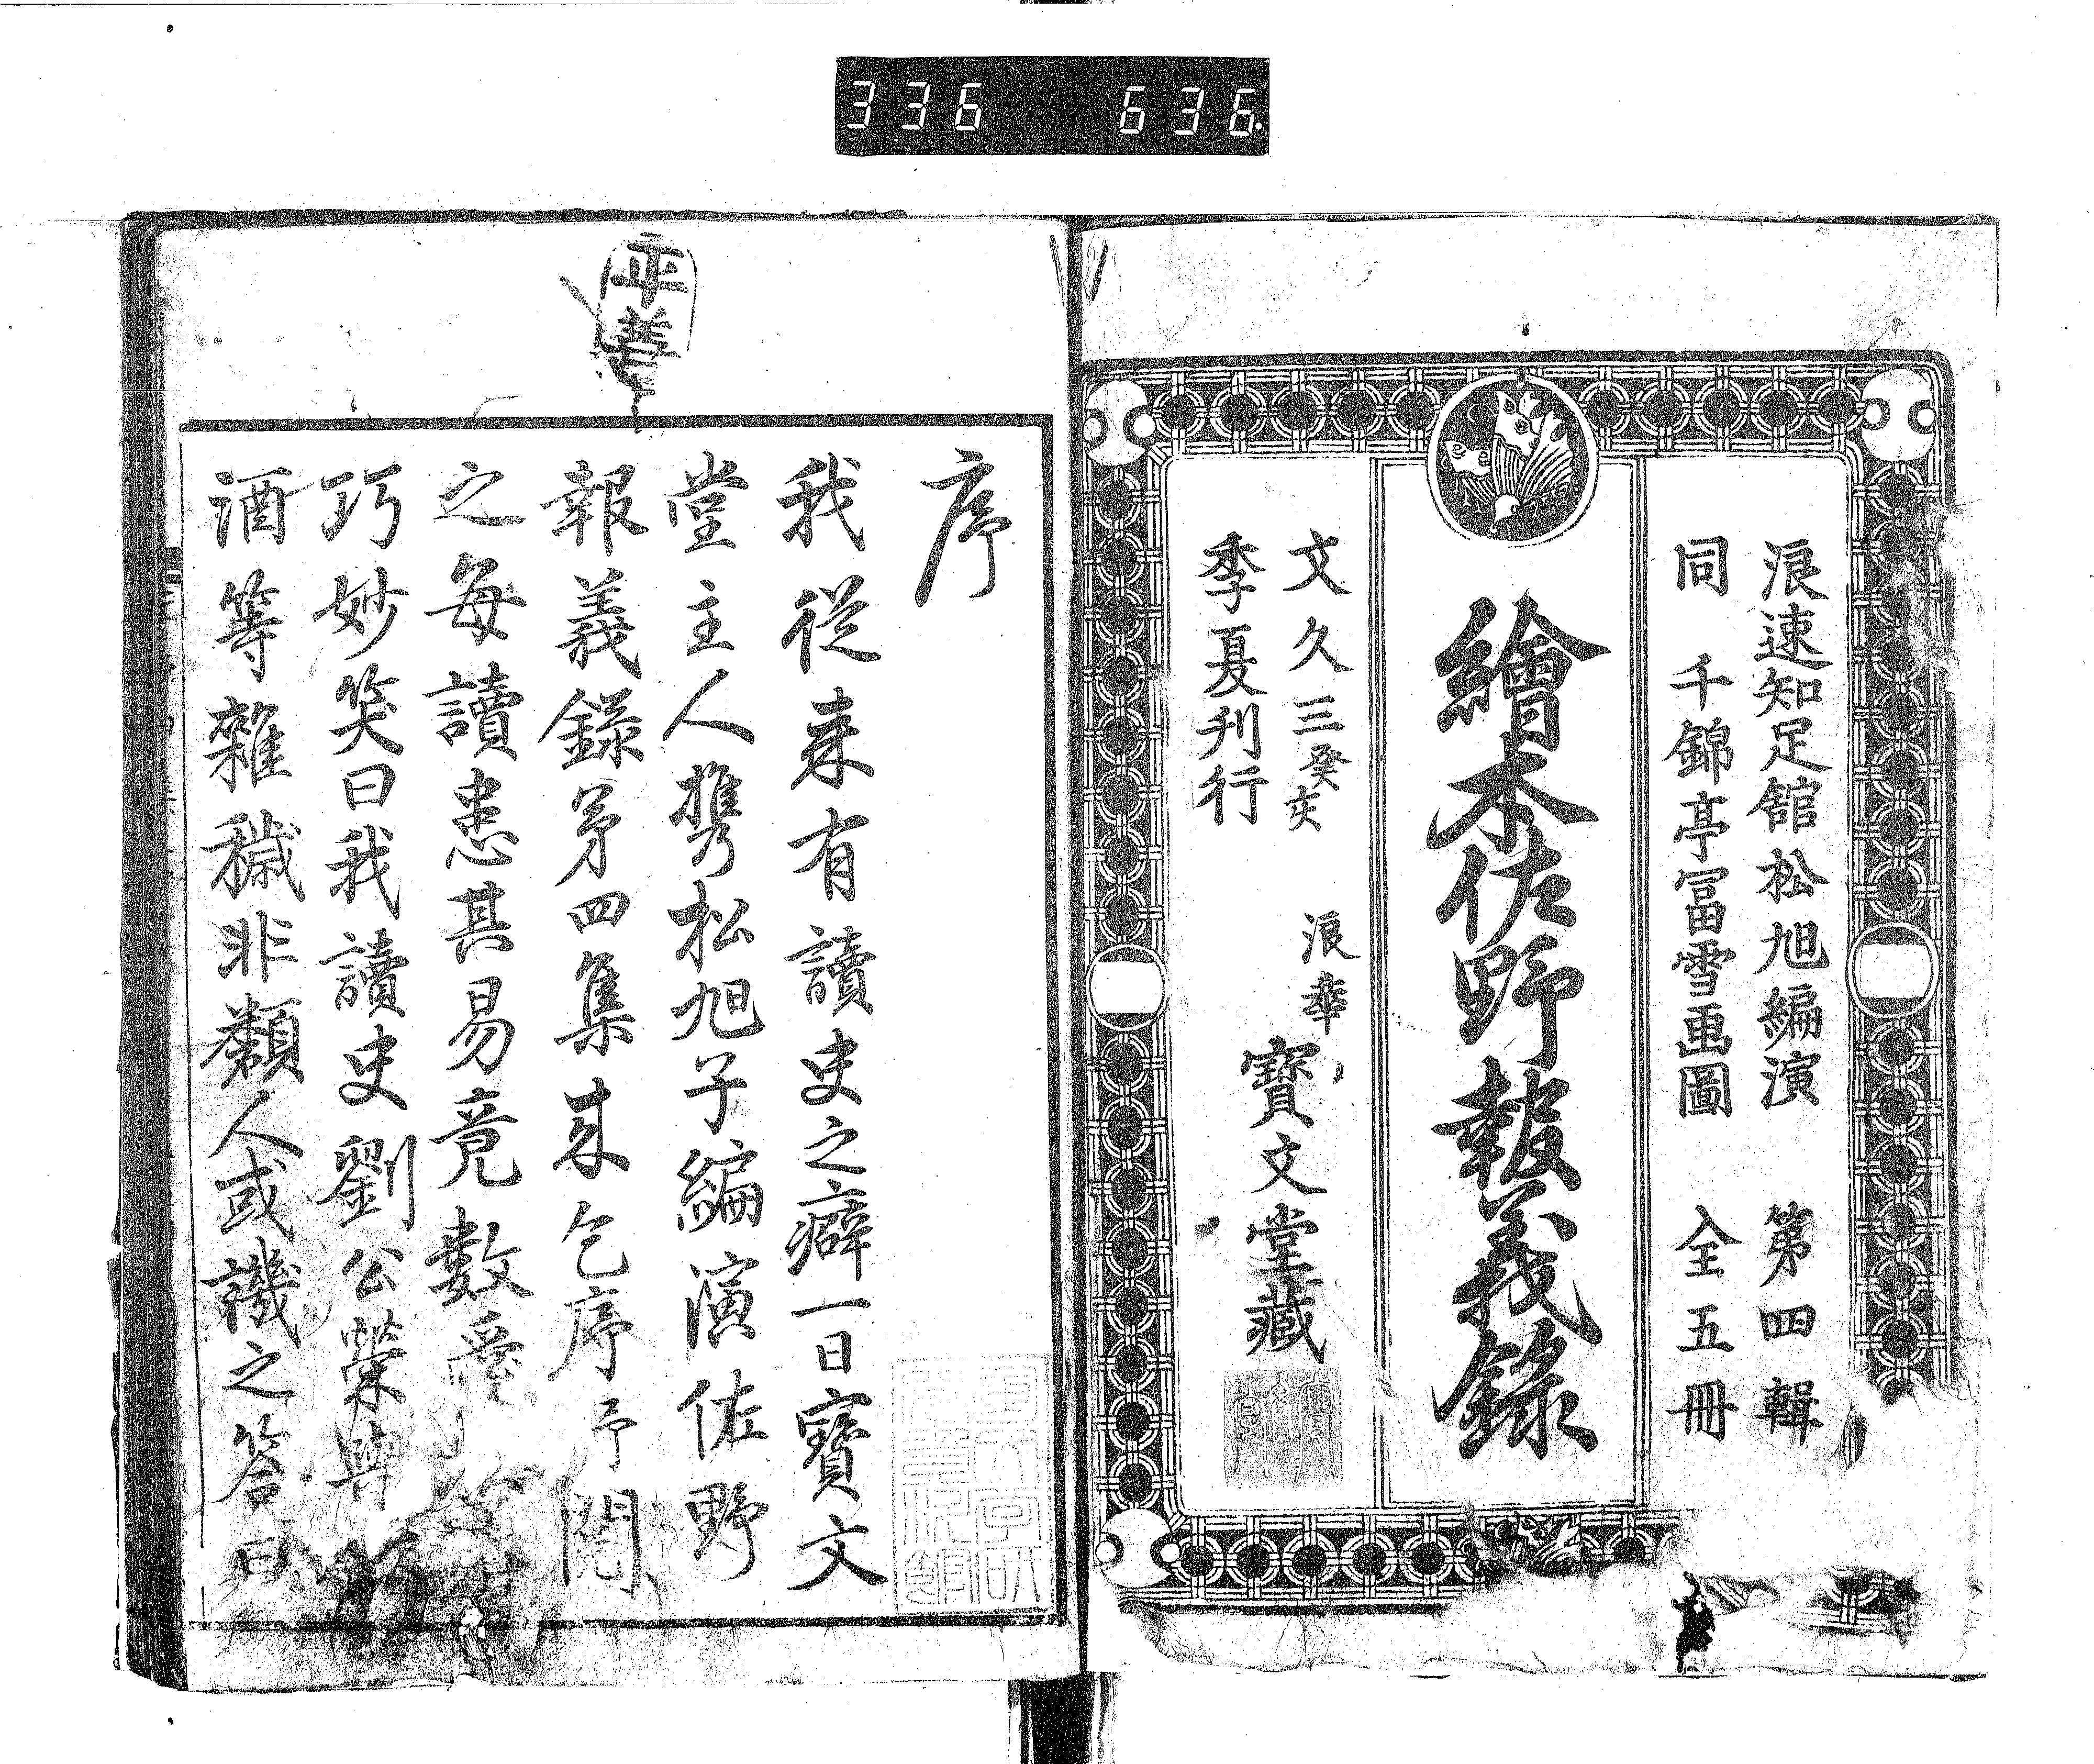 336 636
浪速知足舘松旭編演 第四輯
同 千錦亭冨雪画圖 全五冊
繪本佐野報義録
文久三癸亥
季夏刋行
浪華 寳文堂藏
平善
序
我從来有讀史之癖一日寳文
堂主人携松旭子編演佐野
報義録苐四集来乞序予閲
之每讀患其易竟數
巧妙笑曰我讀史劉公榮與
酒等雜穢非類人或譏之答曰